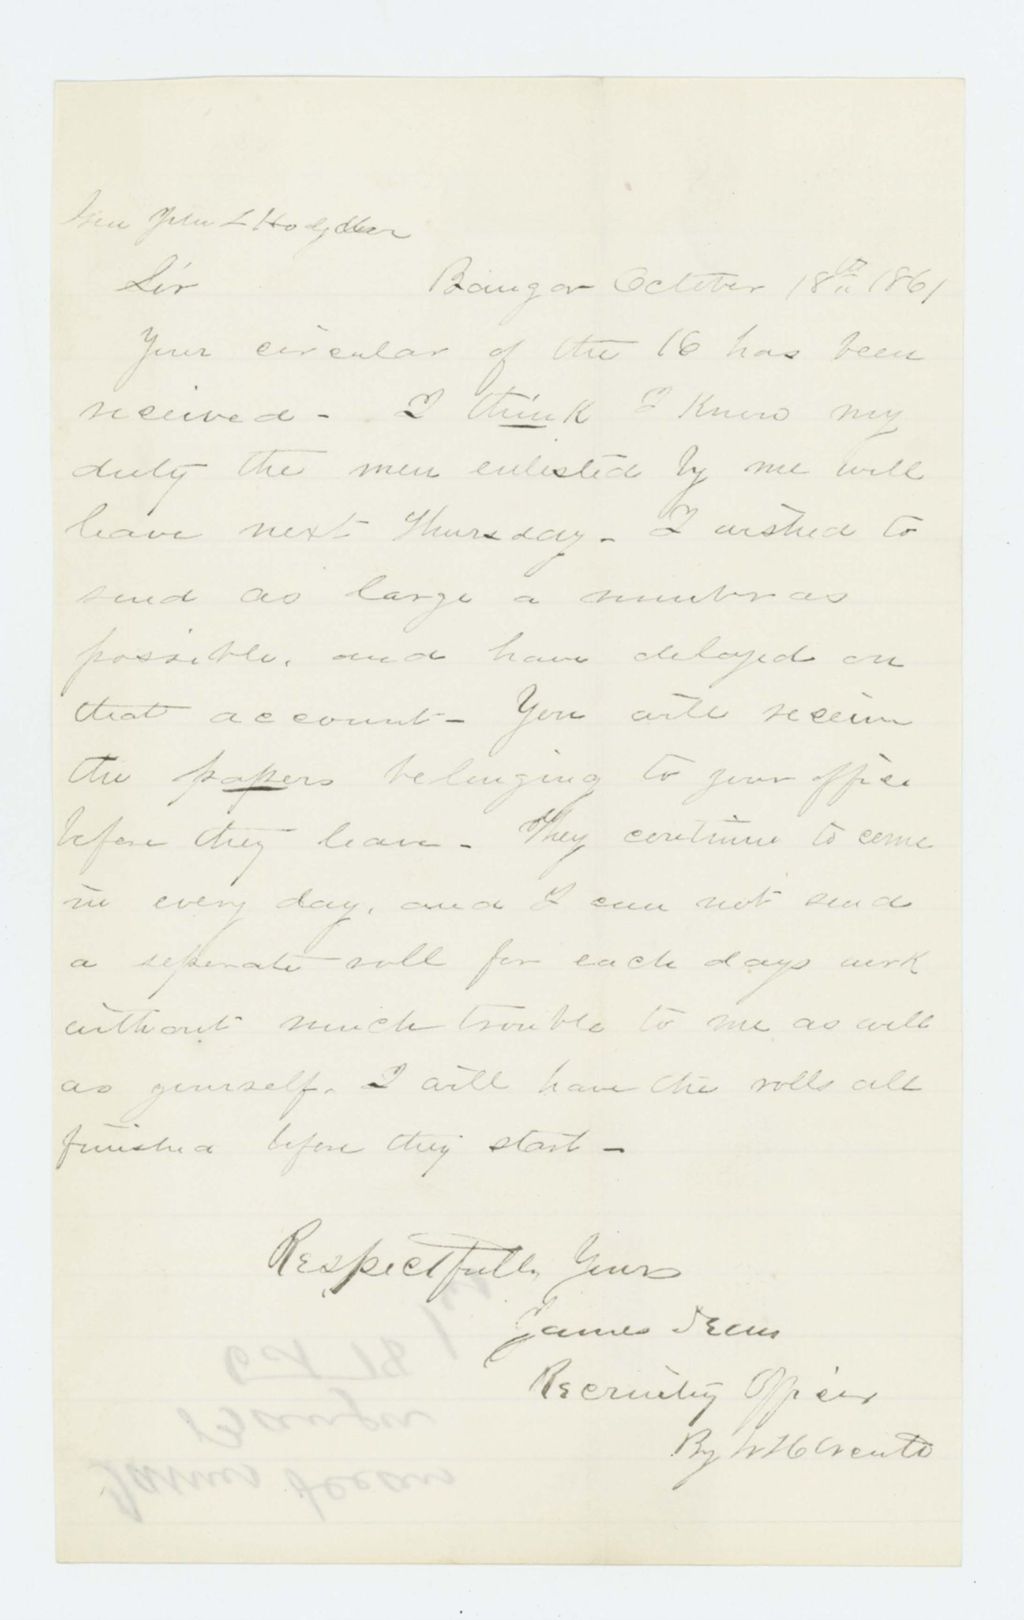 Gen John L Hodgdon
Sir Bangor October 18th 1861
Your circular of the 16 has been
received - I think I know my
duty the men enlisted by me will
leave next Thursday - I wished to
send as large a number as
possible, and have delayed on
that account - You will receive
the papers belonging to your office
before they leave - They continue to come
in every day, and I can not send
a seperate roll for each days work
without much trouble to me as well
as yourself. I will have the rolls all
finished before they start -
Respectfully Yours
James Dean
Recruiting Officer
By
Oct 18
Bangor
James Dean